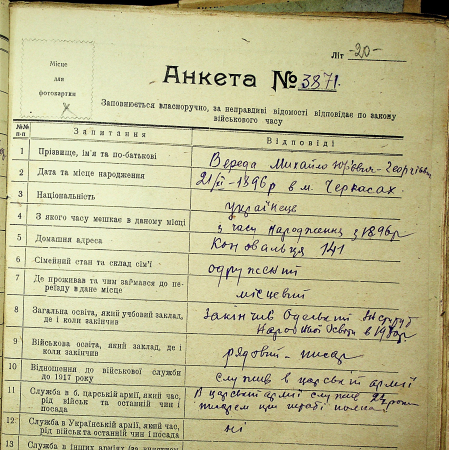 Літ -20-
Місце
для
фотокартки
Анкета № 3871.
Заповнюється власноручно, за неправдиві відомості відповідає по закону
військового часу
№№ п-п
Запитання
Відповіді
1 Прізвище, ім'я та по-батькові
Вереда Михайло Юрієвич-Георгієвич
2 Дата та місце народження
21/XI-1896р в м. Черкасах.
3 Національність
українець
4 З якого часу мешкає в даному місці
з часу народження з 1896р
5 Домашня адреса
Коновальця 141
6 Сімейний стан та склад сім'ї
одружений
7 Де проживав та чим займався до пе-
реїзду в дане місце
місцевий
8 Загальна освіта, який учбовий заклад,
де і коли закінчив
закінчив Одеський
Народньої Освіти в
9 Військова освіта, який заклад, де і
коли закінчив
рядовий - писар
10 Відношення до військової служби
до 1917 року
служив в царській армії
11 Служба в б. царській армії, який час,
рід військ та останній чин і
посада
В царській армії служив 2 роки
писарем при штабі полка.
12 Служба в Українській армії, який час,
рід військ та останній чин і посада
ні
13 Служба в інших арміях (за винятком